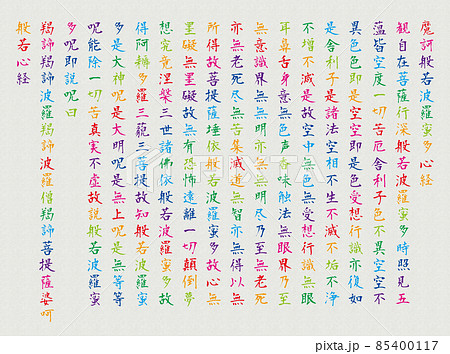 魔訶般若波羅蜜多心経
観自在菩薩行深般若波羅蜜多時照見五
蘊皆空度一切苦厄舎利子色不異空空不
異色色即是空空即是色受想行識亦復如
是舎利子是諸法空相不生不滅不垢不浄
不増不減是故空中無色無受想行識無眼
耳鼻舌身意無色声香味触法無眼界乃至
無意識界無無明亦無無明尽乃至無老死
亦無老死尽無苦集滅道無智亦無得以無
所得故菩提薩埵依般若波羅蜜多故心無
罣礙無罣礙故無有恐怖遠離一切顛倒夢
想究竟涅槃三世諸佛依般若波羅蜜多故
得阿耨多羅三藐三菩提故知般若波羅蜜
多是大神呪是大明呪是無上呪是無等等
呪能除一切苦真実不虚故説般若波羅蜜
多呪即説呪曰
羯諦羯諦波羅羯諦波羅僧羯諦菩提薩婆呵
般若心経
PIXTA
pixta.jp - 85400117